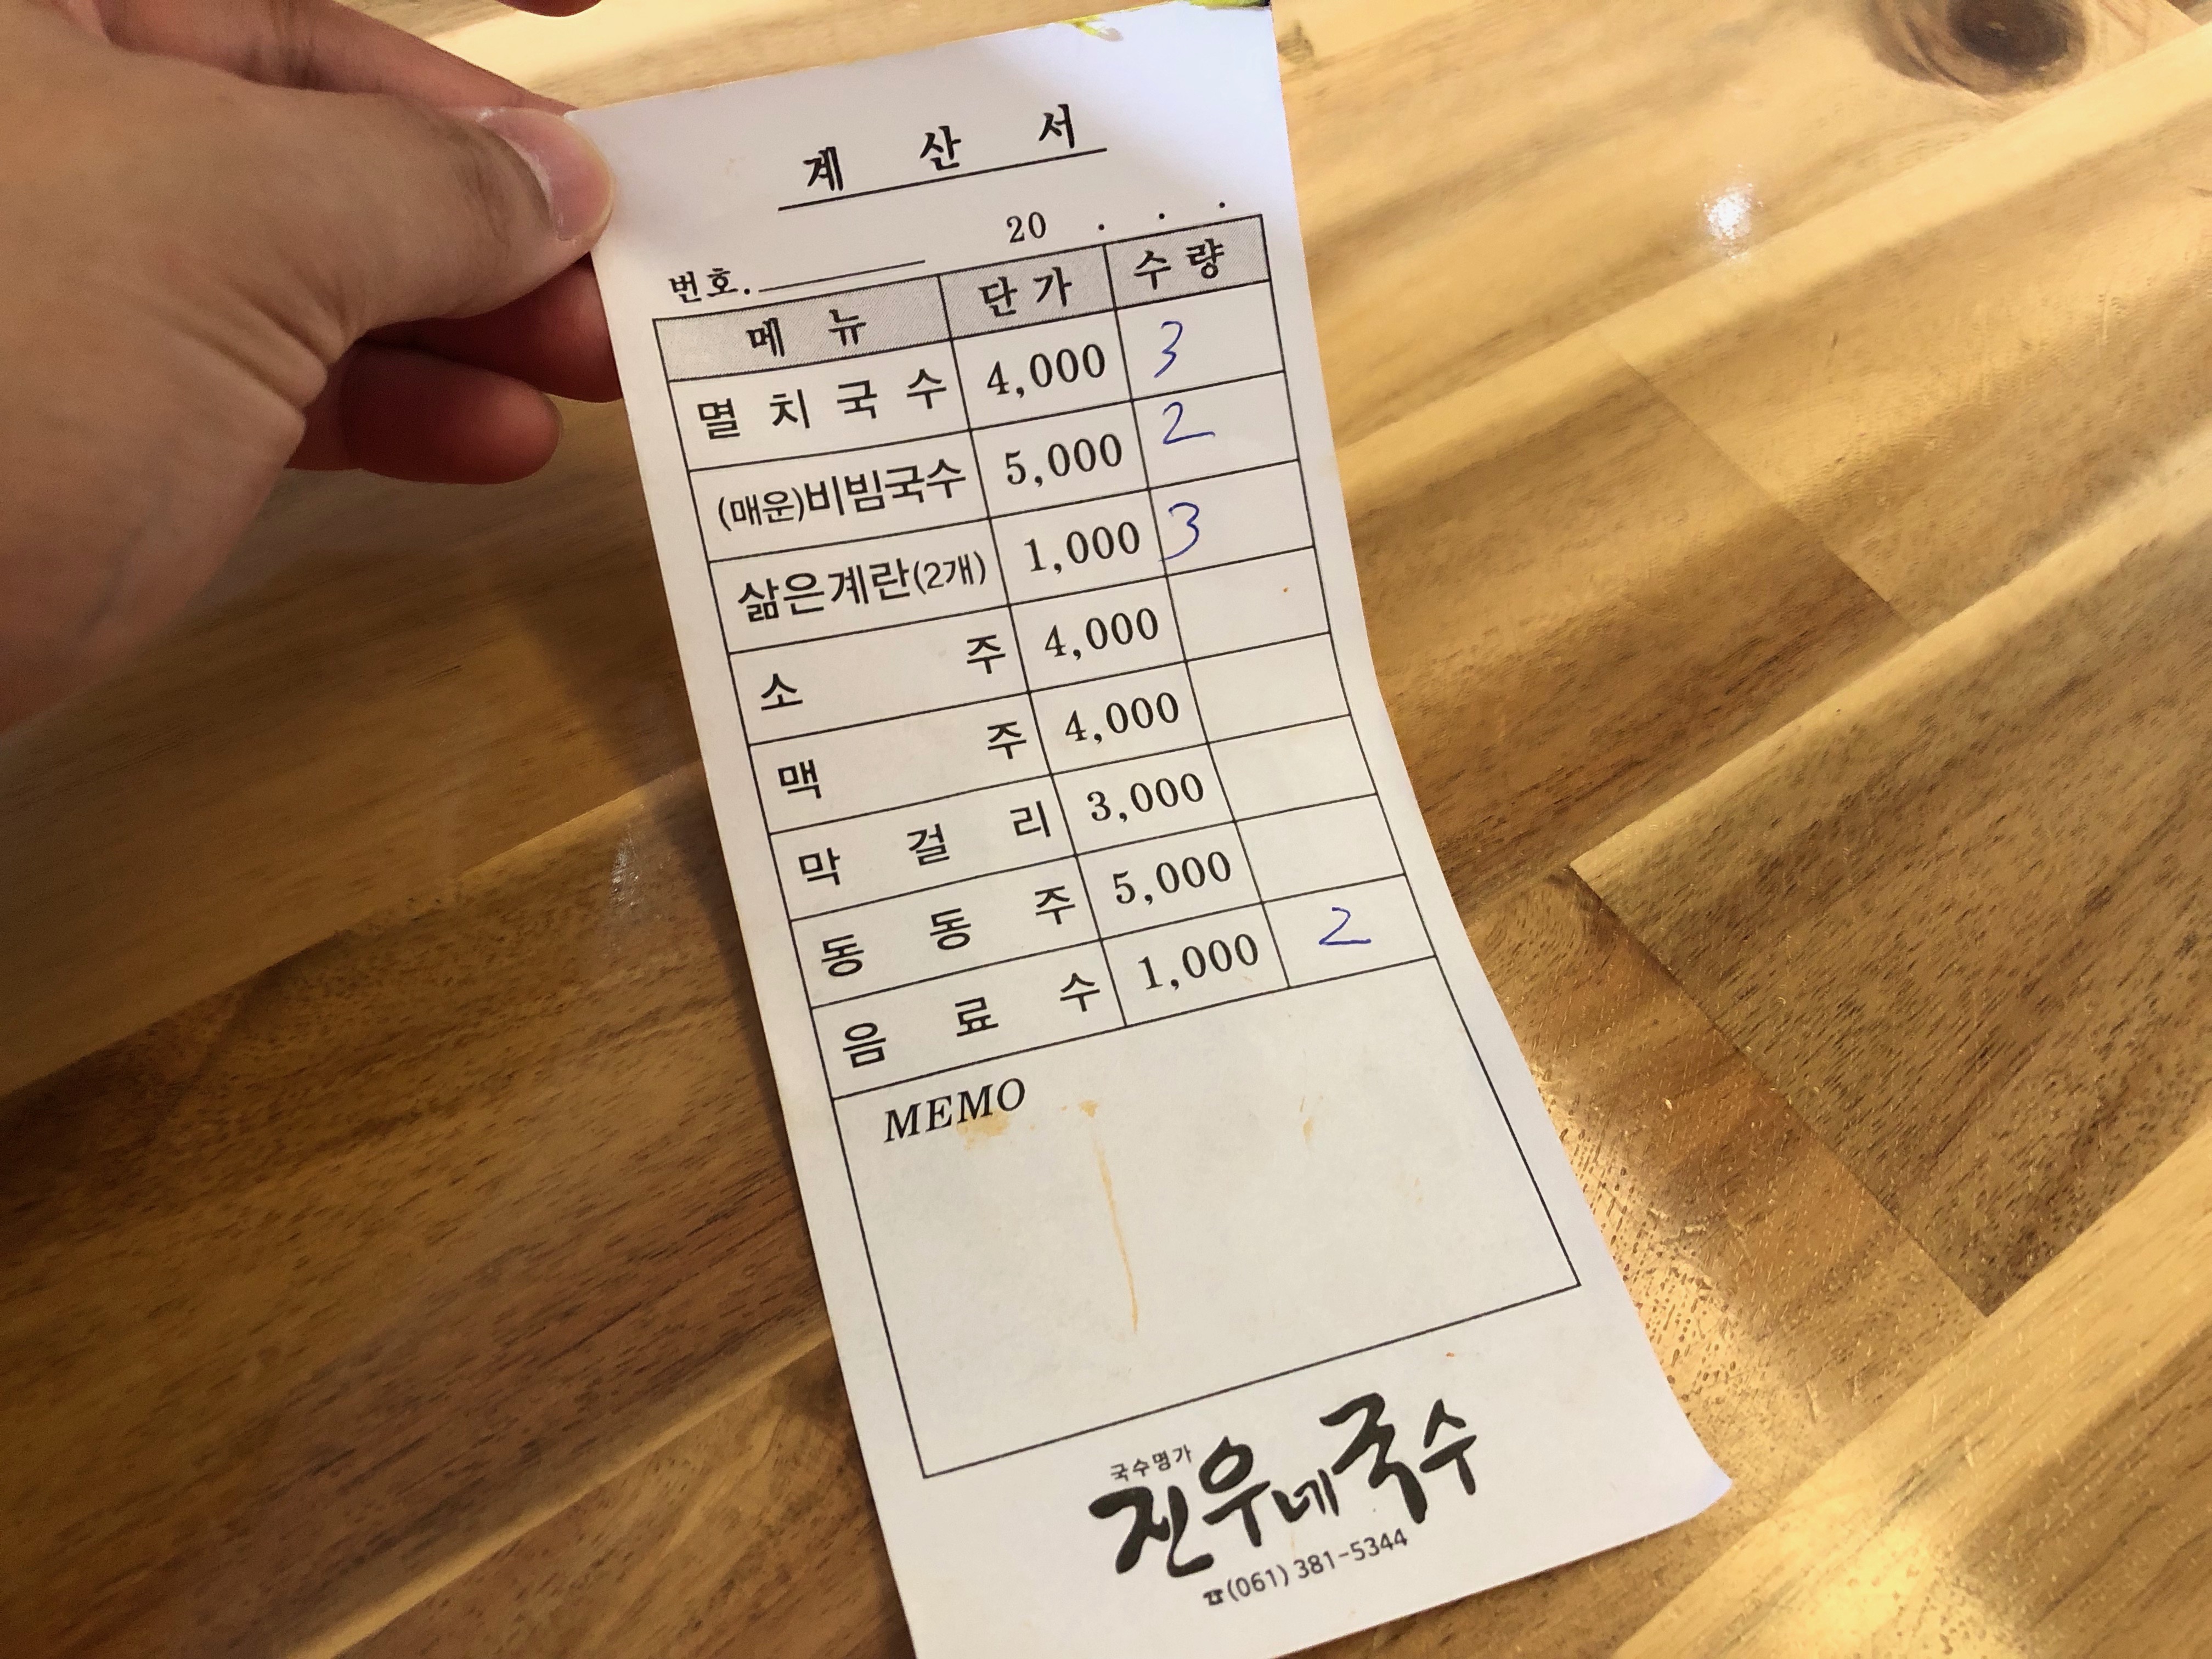 계 산 서
20 . . .
번호.
메 뉴 단 가 수 량
멸 치 국 수 4,000 3
(매운)비빔국수 5,000 2
삶은계란(2개) 1,000 3
소 주 4,000
맥 주 4,000
막 걸 리 3,000
동 동 주 5,000
음 료 수 1,000 2
MEMO
국수명가
진우네국수
☎(061) 381-5344